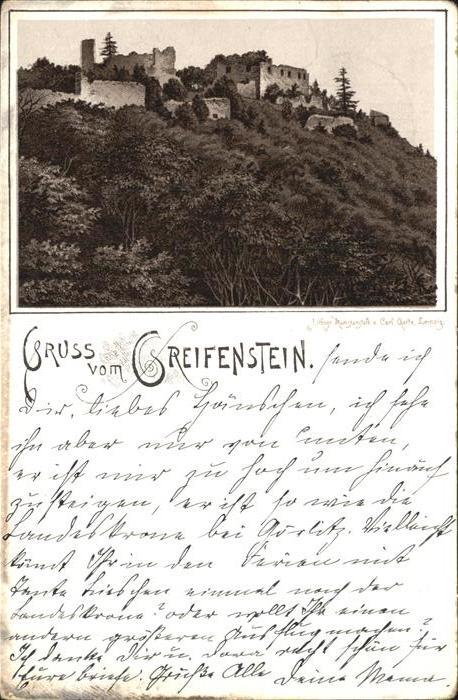 Lithogr. Kunstanstalt v. Carl Garte, Leipzig.
GRUSS VOM GREIFENSTEIN. sende ich
Dir, liebes Hänschen, ich sehe
ihn aber nur von unten,
er ist mir zu hoch um hinauf
zu steigen, er ist so wie die
Landeskrone bei Görlitz. Vielleicht
könnt Ihr in den Ferien mit
Tante Lieschen einmal nach der
Landeskrone? oder wollt Ihr einen
andern größeren Ausflug machen?
Ich danke Dir u. Dora recht schön für
Eure briefe. Grüße Alle Deine Mama.